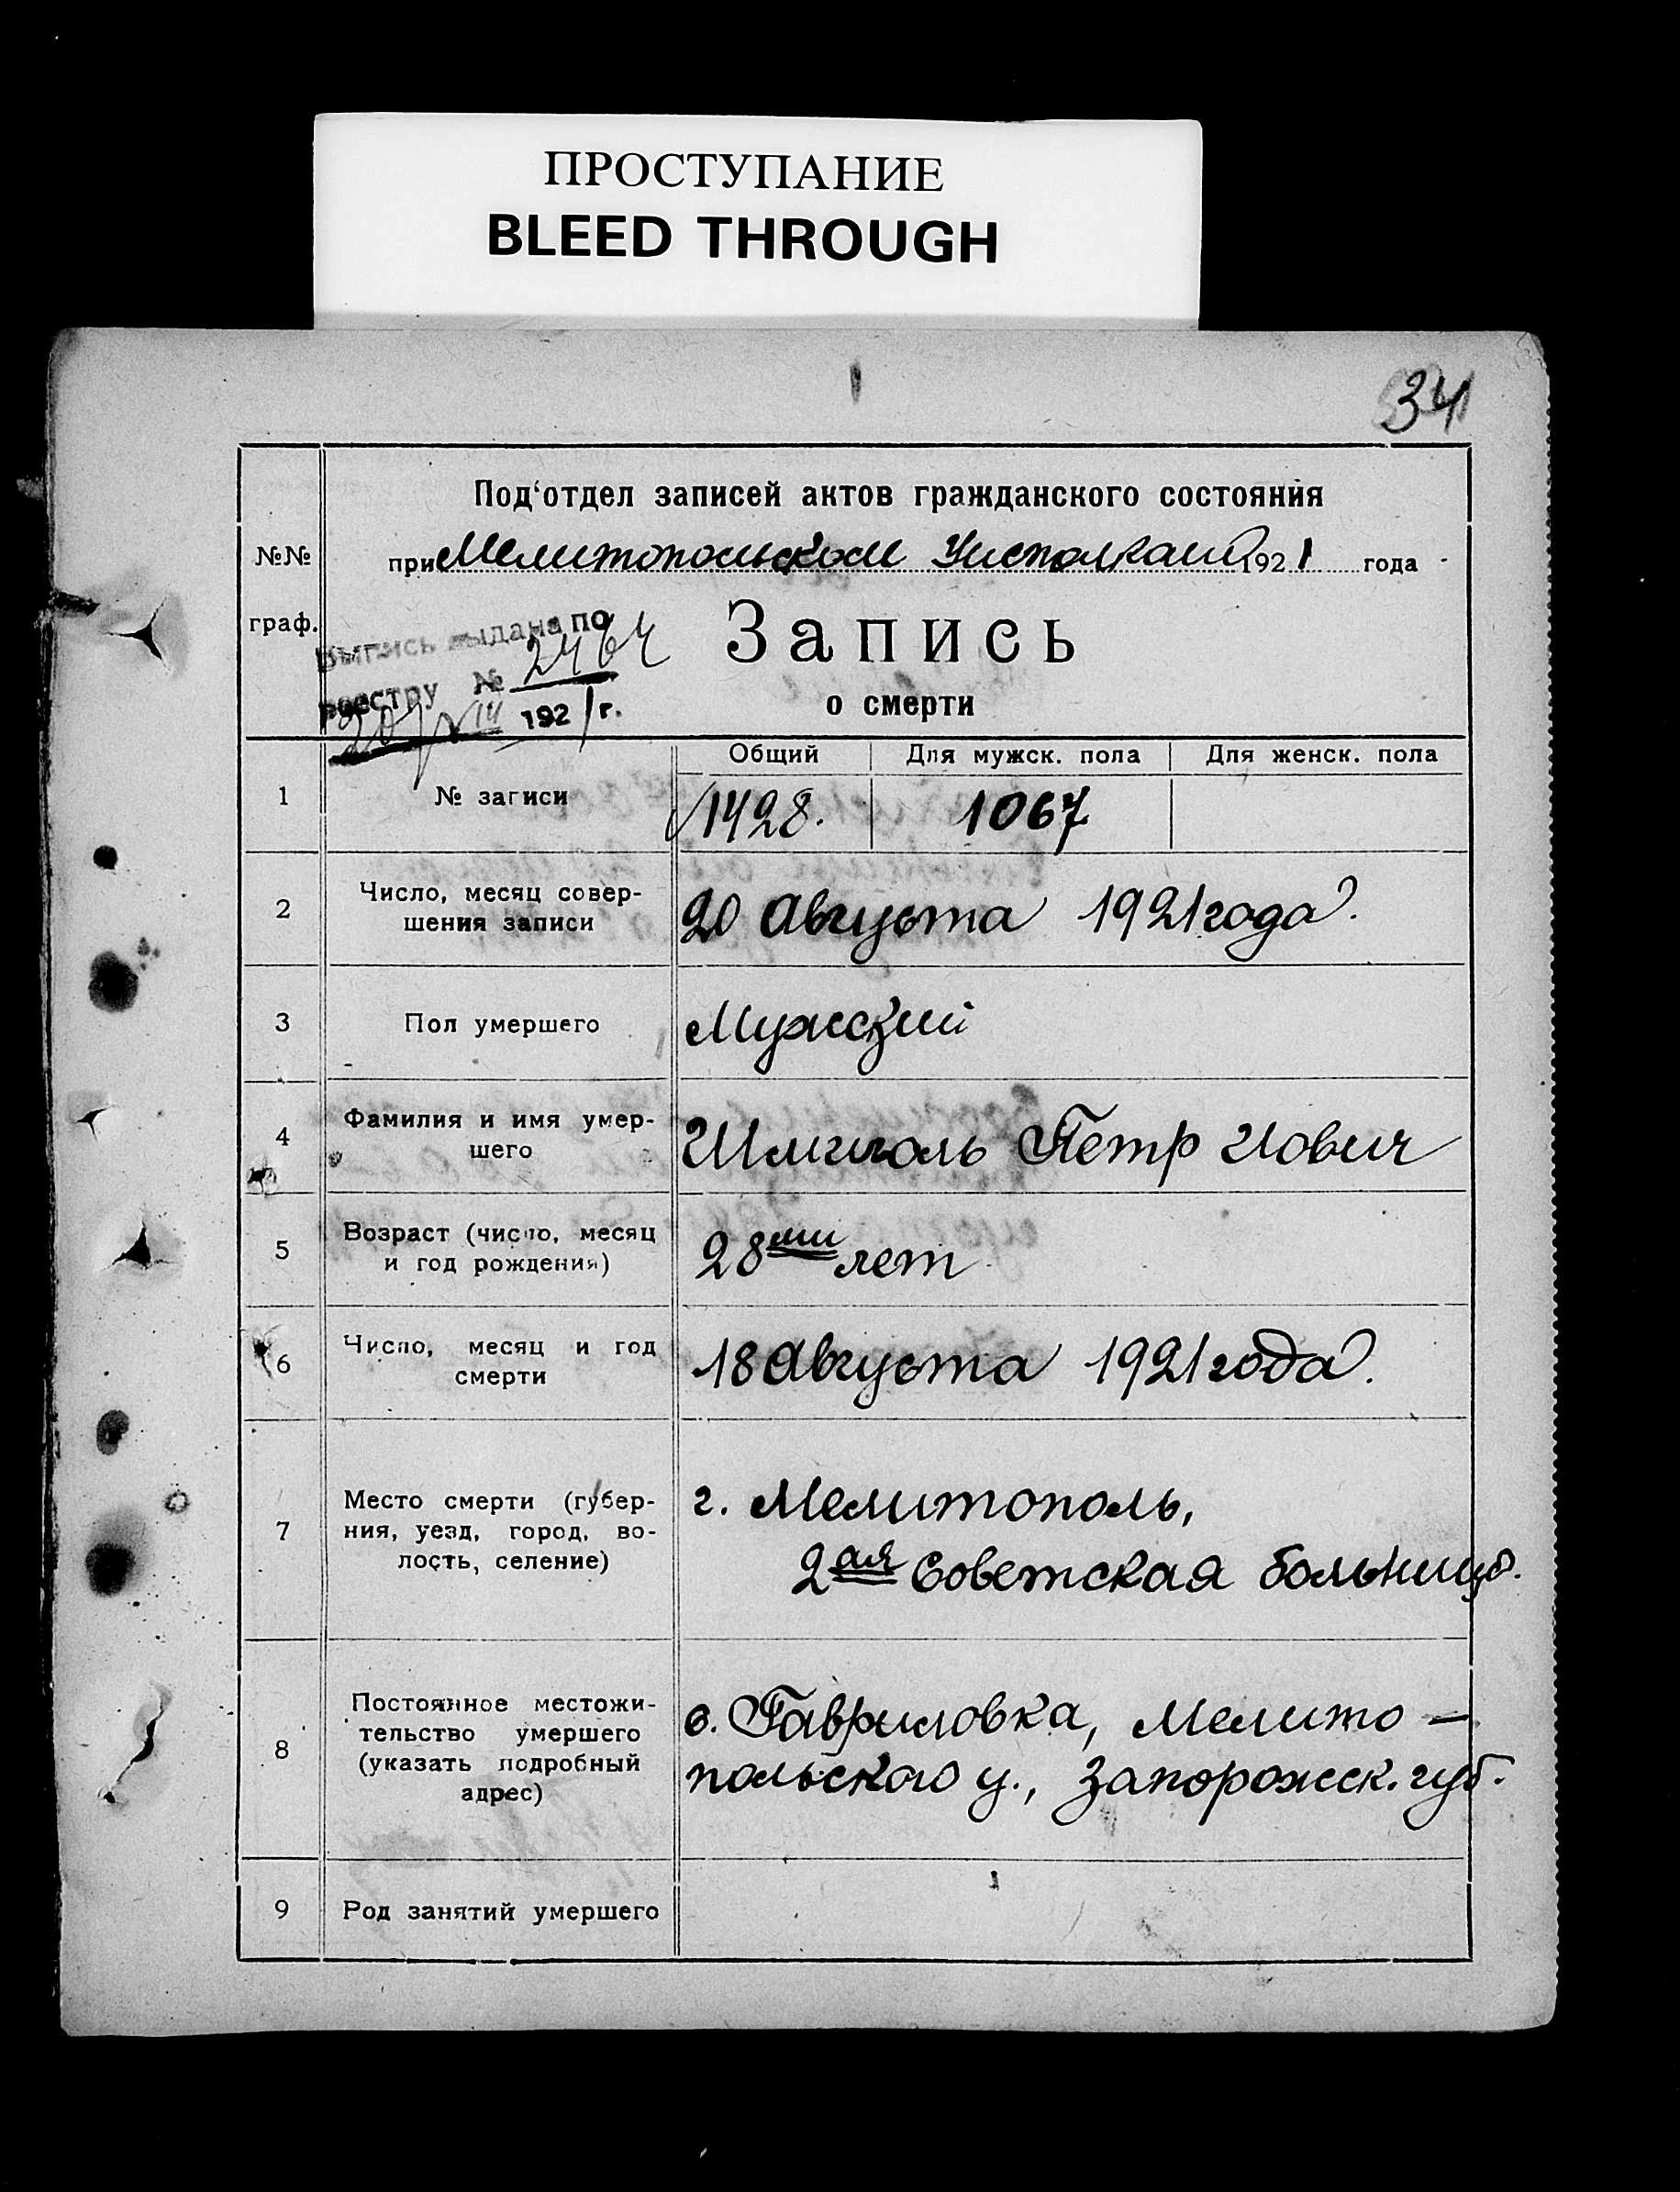 ПРОСТУПАНИЕ
BLEED THROUGH
34
Под'отдел записей актов гражданского состояния
№№ граф.
при Мелитопольском Уисполкоме 1921 года
Выпись выдана по
реестру № 2464
20/VIII 1921 г.
Запись
о смерти
Общий Для мужск. пола Для женск. пола
1 № записи 1428. 1067
2 Число, месяц совер-
шения записи 20 Августа 1921 года.
3 Пол умершего Мужский
4 Фамилия и имя умер-
шего Шмиголь Петр Иович
5 Возраст (число, месяц
и год рождения) 28ми лет
6 Число, месяц и год
смерти 18 Августа 1921 года.
7 Место смерти (губер-
ния, уезд, город, во-
лость, селение)
г. Мелитополь,
2ая Советская больница.
8 Постоянное местожи-
тельство умершего
(указать подробный
адрес)
с. Гавриловка, Мелито-
польского у., Запорожск. губ.
9 Род занятий умершего